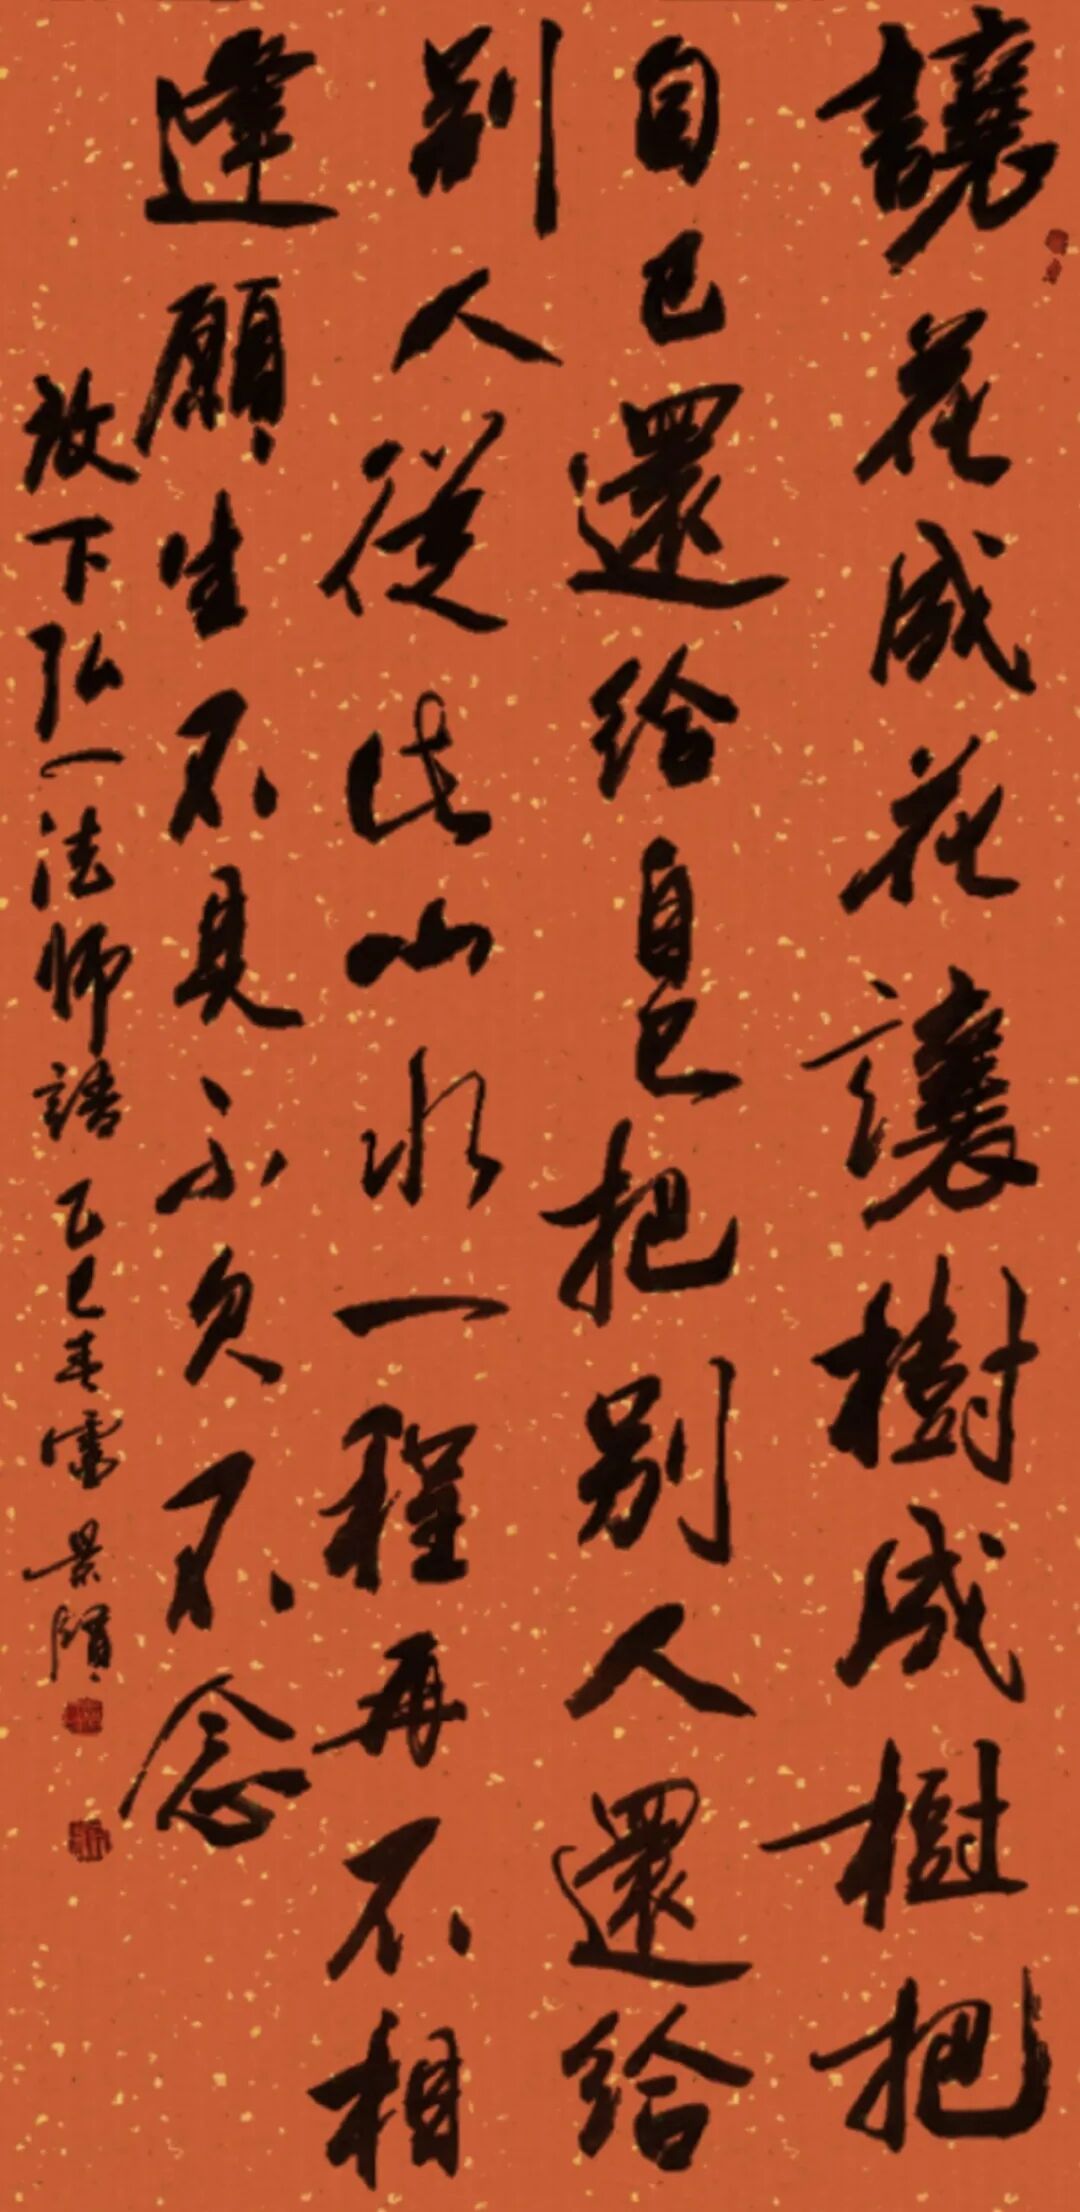 讓花成花讓樹成樹把
自己還給自己把別人還給
別人從此山水一程再不相
逢願生不見不負不念
放下弘一法师語乙巳春雷景賓